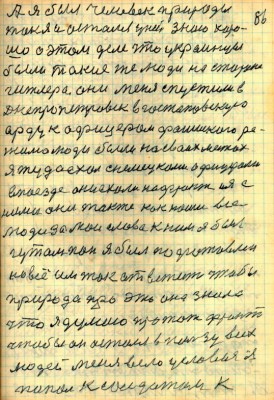 86
А я был человек природы
такой остался уней знаю хоро-
шо о этом деле что украинцы
были такие же люди на стороне
гитлера они меня спустили в
Днепропетровск в гостаповскую
к офицерам фашиского ре-
жима люди были на своих летах
я туда ехал с немецкими офицерами
в поезде они ехали на фронт и я с
ними они также как наши все
люди за мои слова к ним я был
гутоман я был подготовлен
ковсё им так ответить чтобы
природа про это она знала
что я думаю про тот фронт
чтобы он остался в пользу всех
людей меня вело условия я
попал к солдатам к